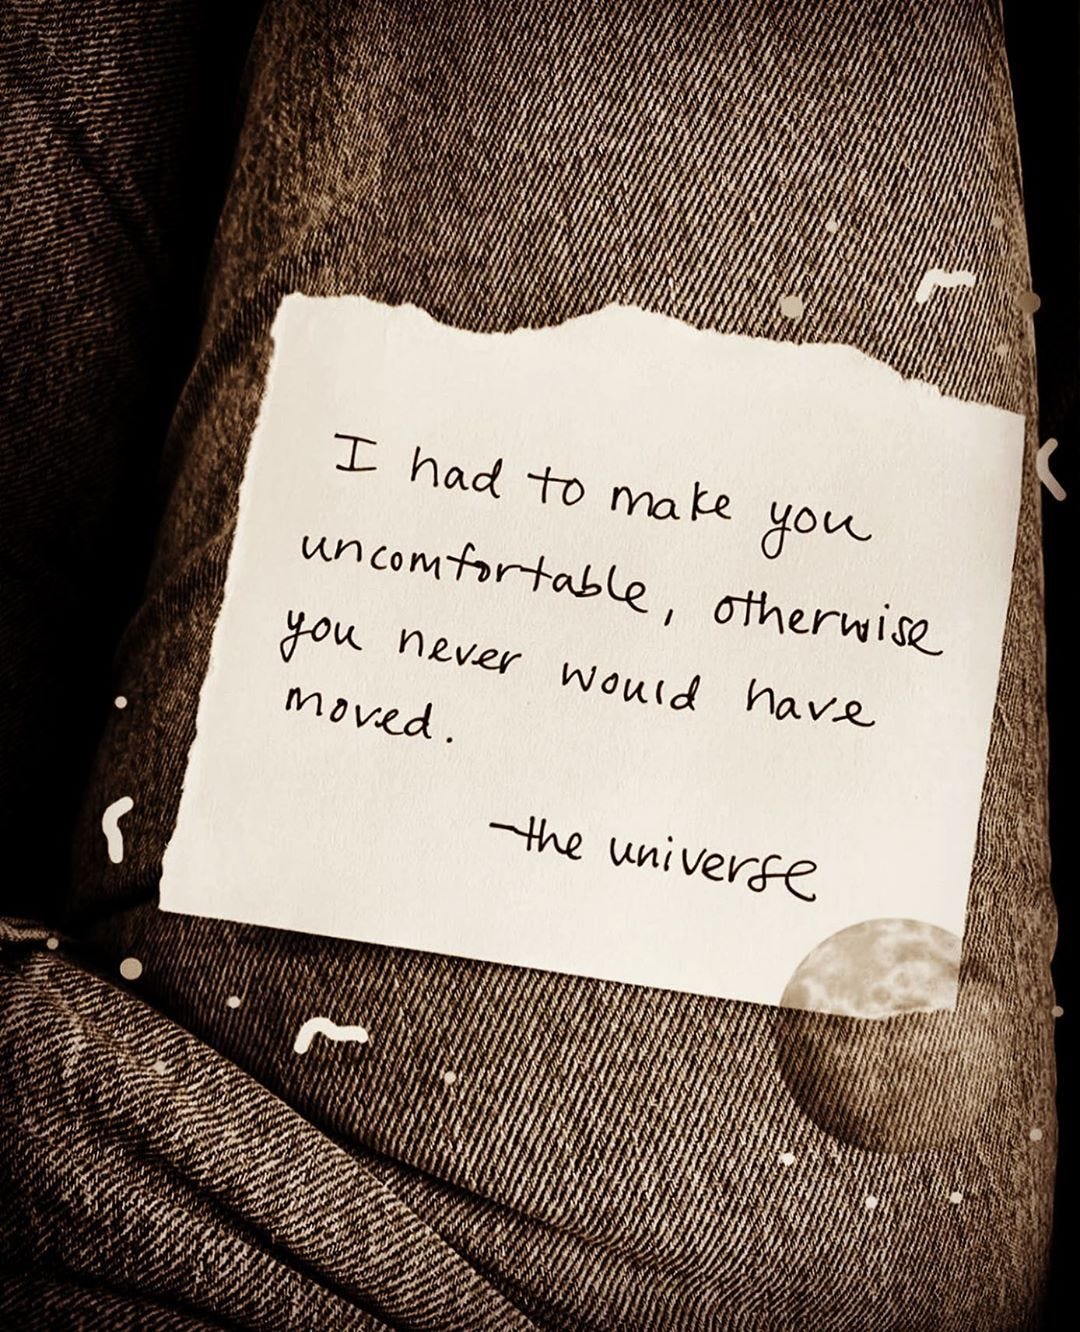 I had to make you
uncomfortable, otherwise
you never would have
moved.
-the universe